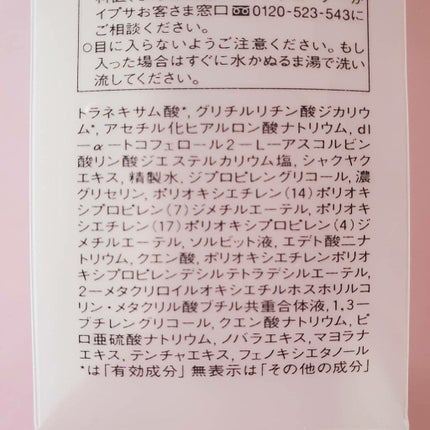 イプサお客さま窓口 0120-523-543に
ご相談ください。
○目に入らないようご注意ください。もし
入った場合はすぐに水かぬるま湯で洗い
流してください。
トラネキサム酸*, グリチルリチン酸ジカリウ
ム*, アセチル化ヒアルロン酸ナトリウム, dl
-α-トコフェロール2-L-アスコルビン
酸リン酸ジエステルカリウム塩, シャクヤク
エキス, 精製水, ジプロピレングリコール, 濃
グリセリン, ポリオキシエチレン(14)ポリオキ
シプロピレン(7)ジメチルエーテル, ポリオキ
シエチレン(17)ポリオキシプロピレン(4)ジ
メチルエーテル, ソルビット液, エデト酸二ナ
トリウム, クエン酸, ポリオキシエチレンポリオ
キシプロピレンデシルテトラデシルエーテル,
2-メタクリロイルオキシエチルホスホリルコ
リン・メタクリル酸ブチル共重合体液, 1,3-
ブチレングリコール, クエン酸ナトリウム, ピ
ロ亜硫酸ナトリウム, ノバラエキス, マヨラナ
エキス, テンチャエキス, フェノキシエタノール
*は「有効成分」無表示は「その他の成分」